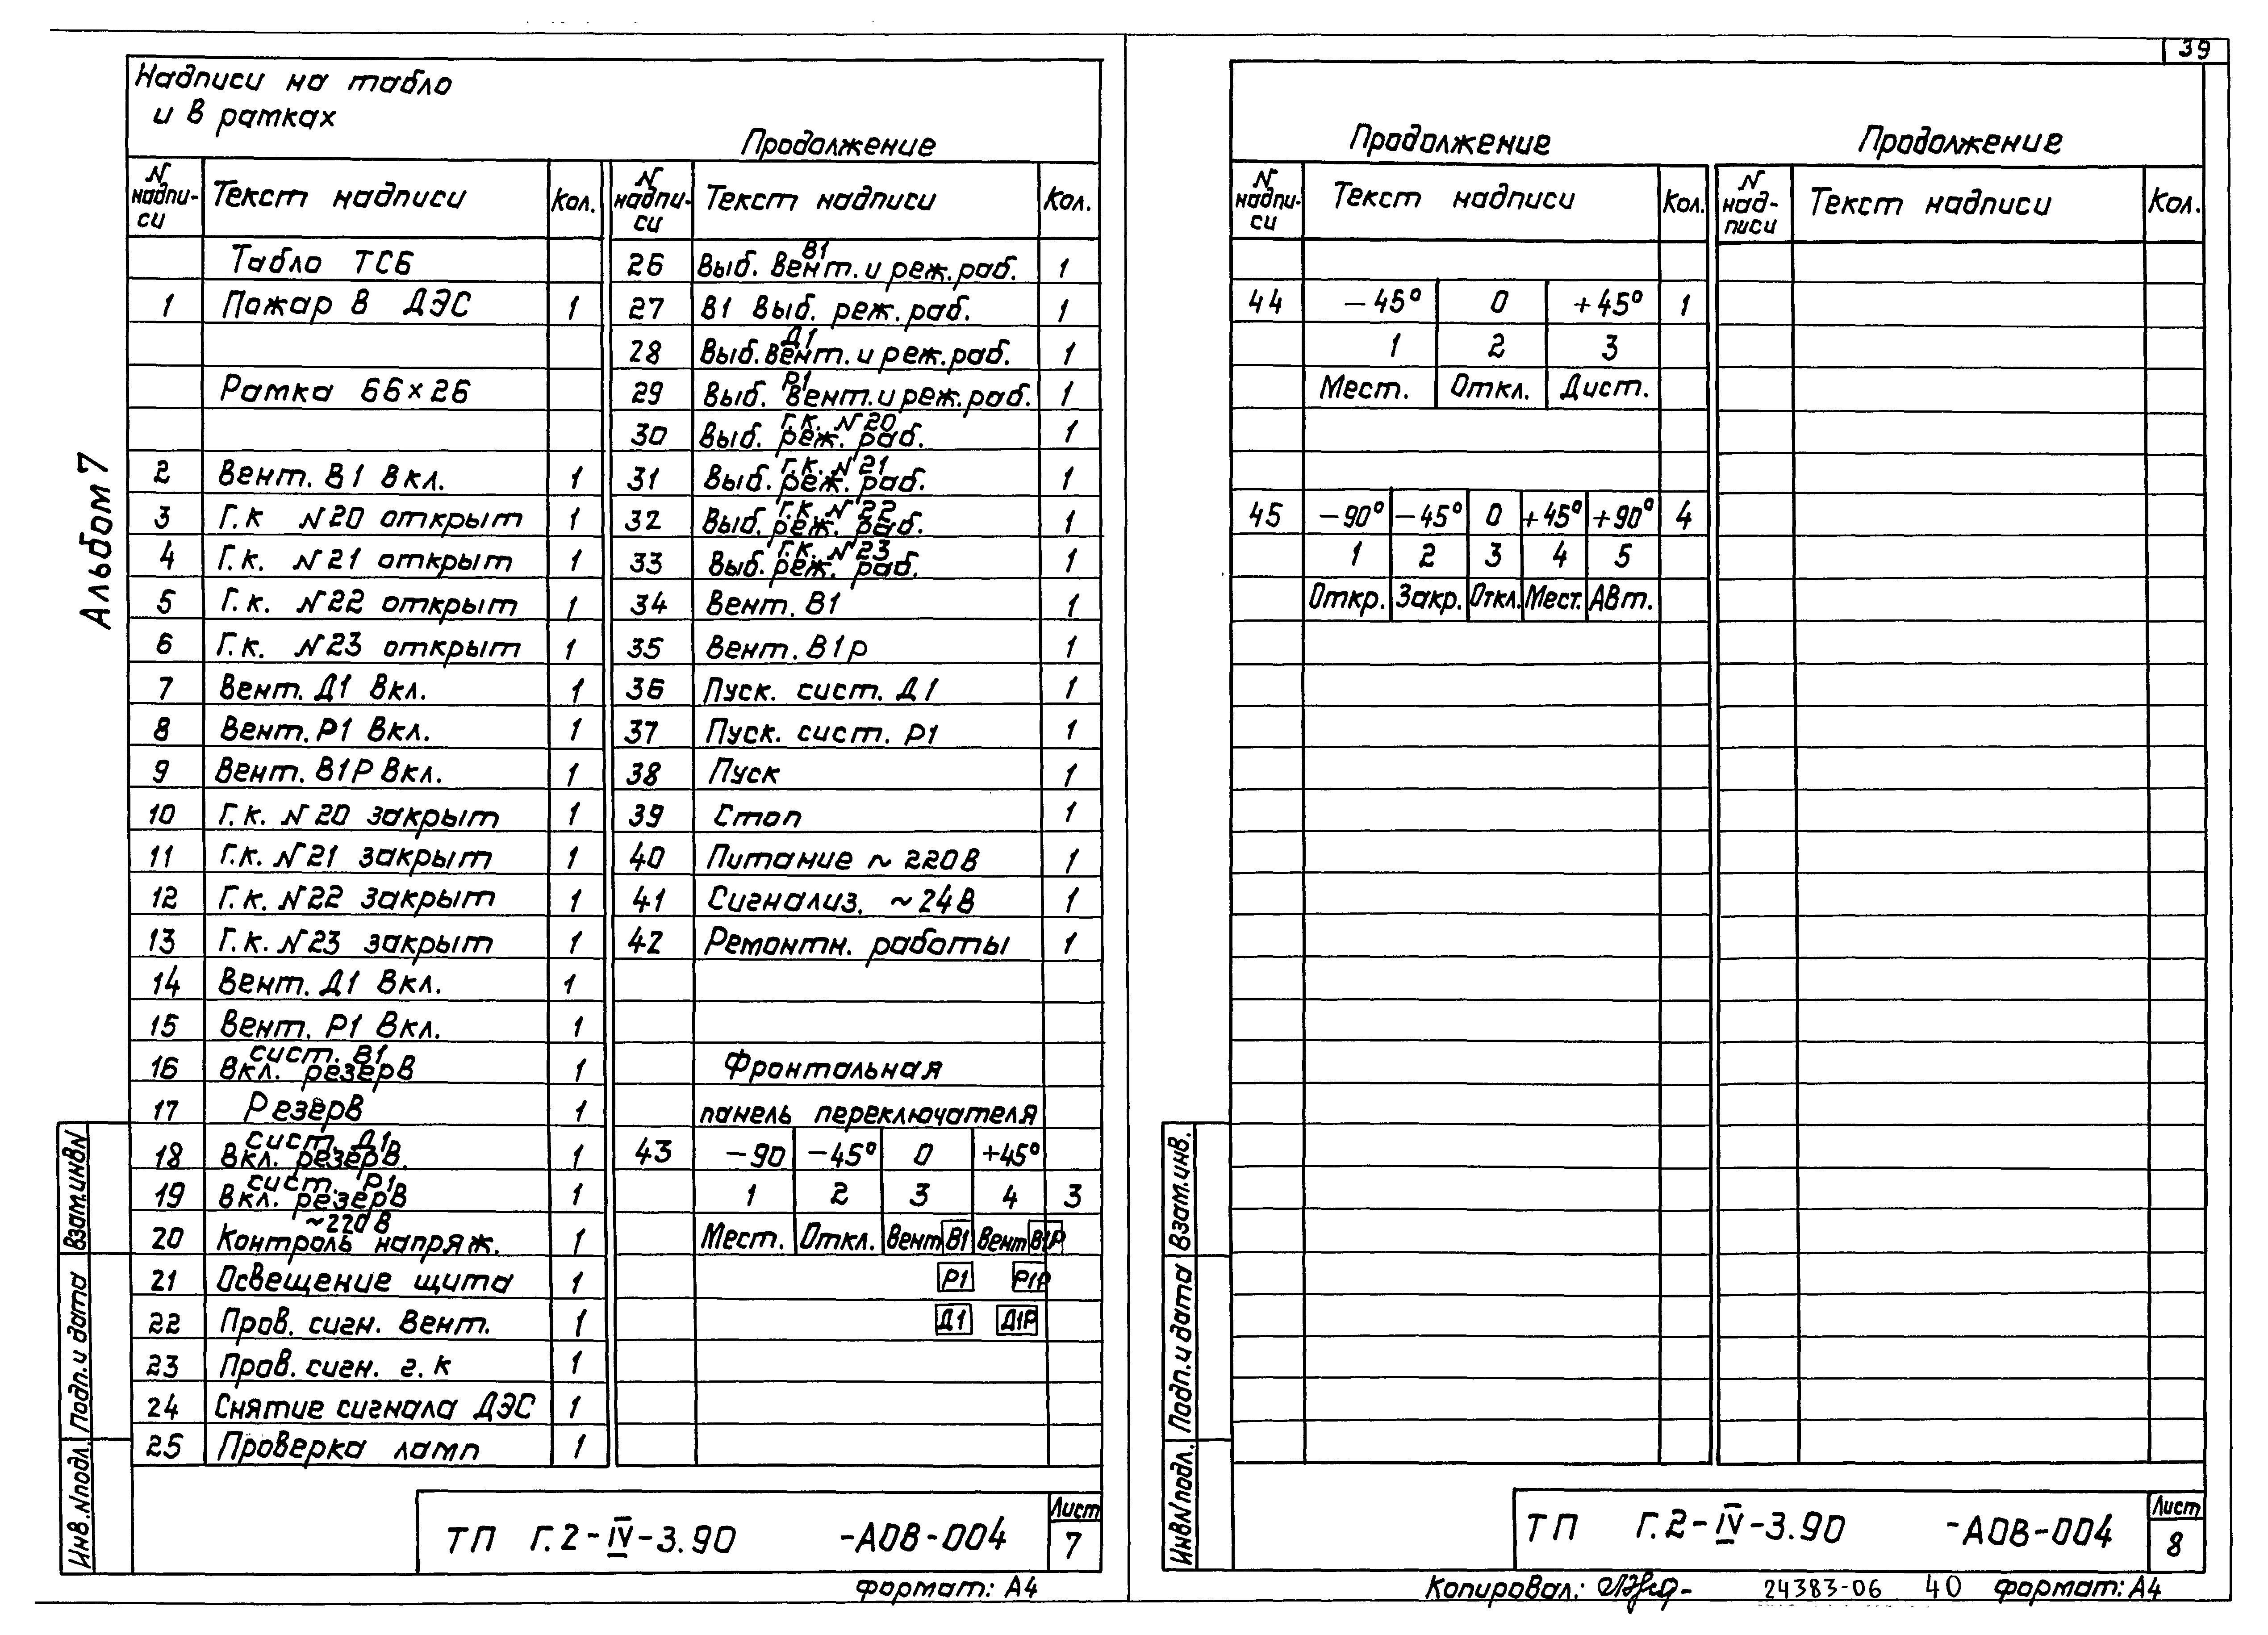 39
Альбом 7
Надписи на табло
и в рамках
Продолжение
N надпи-си Текст надписи Кол.
Табло ТСБ
1 Пожар в ДЭС 1
Рамка 66×26
2 Вент. В1 Вкл. 1
3 Г.к N20 открыт 1
4 Г.к. N21 открыт 1
5 Г.к. N22 открыт 1
6 Г.к. N23 открыт 1
7 Вент. Д1 Вкл. 1
8 Вент. Р1 Вкл. 1
9 Вент. В1Р Вкл. 1
10 Г.к. N20 закрыт 1
11 Г.к. N21 закрыт 1
12 Г.к. N22 закрыт 1
13 Г.к. N23 закрыт 1
14 Вент. Д1 Вкл. 1
15 Вент. Р1 Вкл. 1
сист. В1
16 Вкл. резерв 1
17 Резерв 1
сист. Д1
18 Вкл. резерв. 1
сист. Р1
19 Вкл. резерв 1
~220В
20 Контроль напряж. 1
21 Освещение щита 1
22 Пров. сигн. Вент. 1
23 Пров. сигн. г. к 1
24 Снятие сигнала ДЭС 1
25 Проверка ламп 1
N надпи-си Текст надписи Кол.
В1
26 Выб. Вент. и реж. раб. 1
27 В1 Выб. реж. раб. 1
Д1
28 Выб. вент. и реж. раб. 1
Р1
29 Выб. Вент. и реж. раб. 1
Г.к. N20
30 Выб. реж. раб. 1
Г.к. N21
31 Выб. реж. раб. 1
Г.к. N22
32 Выб. реж. раб. 1
Г.к. N23
33 Выб. реж. раб. 1
34 Вент. В1 1
35 Вент. В1р 1
36 Пуск. сист. Д1 1
37 Пуск. сист. Р1 1
38 Пуск 1
39 Стоп 1
40 Питание ~ 220В 1
41 Сигнализ. ~24В 1
42 Ремонтн. работы 1
Фронтальная
панель переключателя
43 -90 -45° 0 +45°
1 2 3 4 3
Мест. Откл. Вент В1 Вент В1Р
Р1 Р1Р
Д1 Д1Р
Взам.инвN
Подп. и дата
Инв. Nподл.
ТП Г.2-IV-3.90 -АОВ-004
Лист
7
формат: А4
Продолжение
N надпи-си Текст надписи Кол.
44 -45° 0 +45° 1
1 2 3
Мест. Откл. Дист.
45 -90° -45° 0 +45° +90° 4
1 2 3 4 5
Откр. Закр. Откл. Мест. Авт.
Продолжение
N над-писи Текст надписи Кол.
Взам.инв.
Подп. и дата
ИнвNподл.
ТП Г.2-IV-3.90 -АОВ-004
Лист
8
Копировал: 24383-06 40 формат: А4